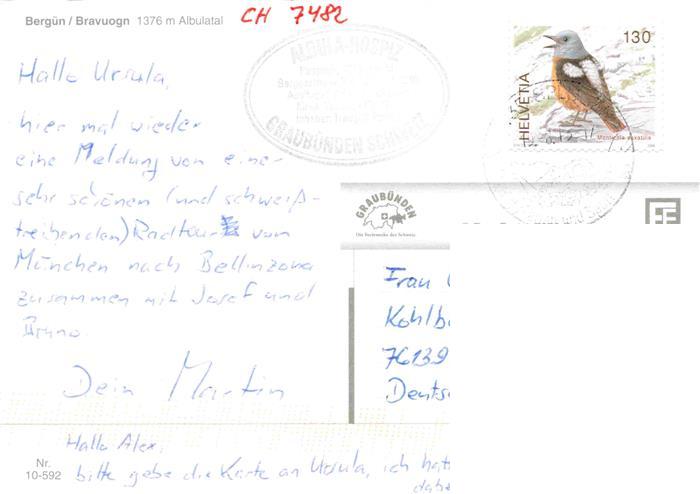 Bergün / Bravuogn 1376 m Albulatal
CH 7482
ALBULA-HOSPIZ
GRAUBÜNDEN SCHWEIZ
130
HELVETIA
Monticola saxatilis
Hallo Ursula,
hier mal wieder
eine Meldung von einer
sehr schönen (und schweiß-
treibenden) Radtour von
München nach Bellinzona
zusammen mit Josef und
Bruno.
Dein Martin
GRAUBÜNDEN
Die Ferienecke der Schweiz
Frau
Kohlb
76139
Deutsc
Hallo Alex,
bitte gebe die Karte an Ursula, ich hat
dabe
Nr.
10-592